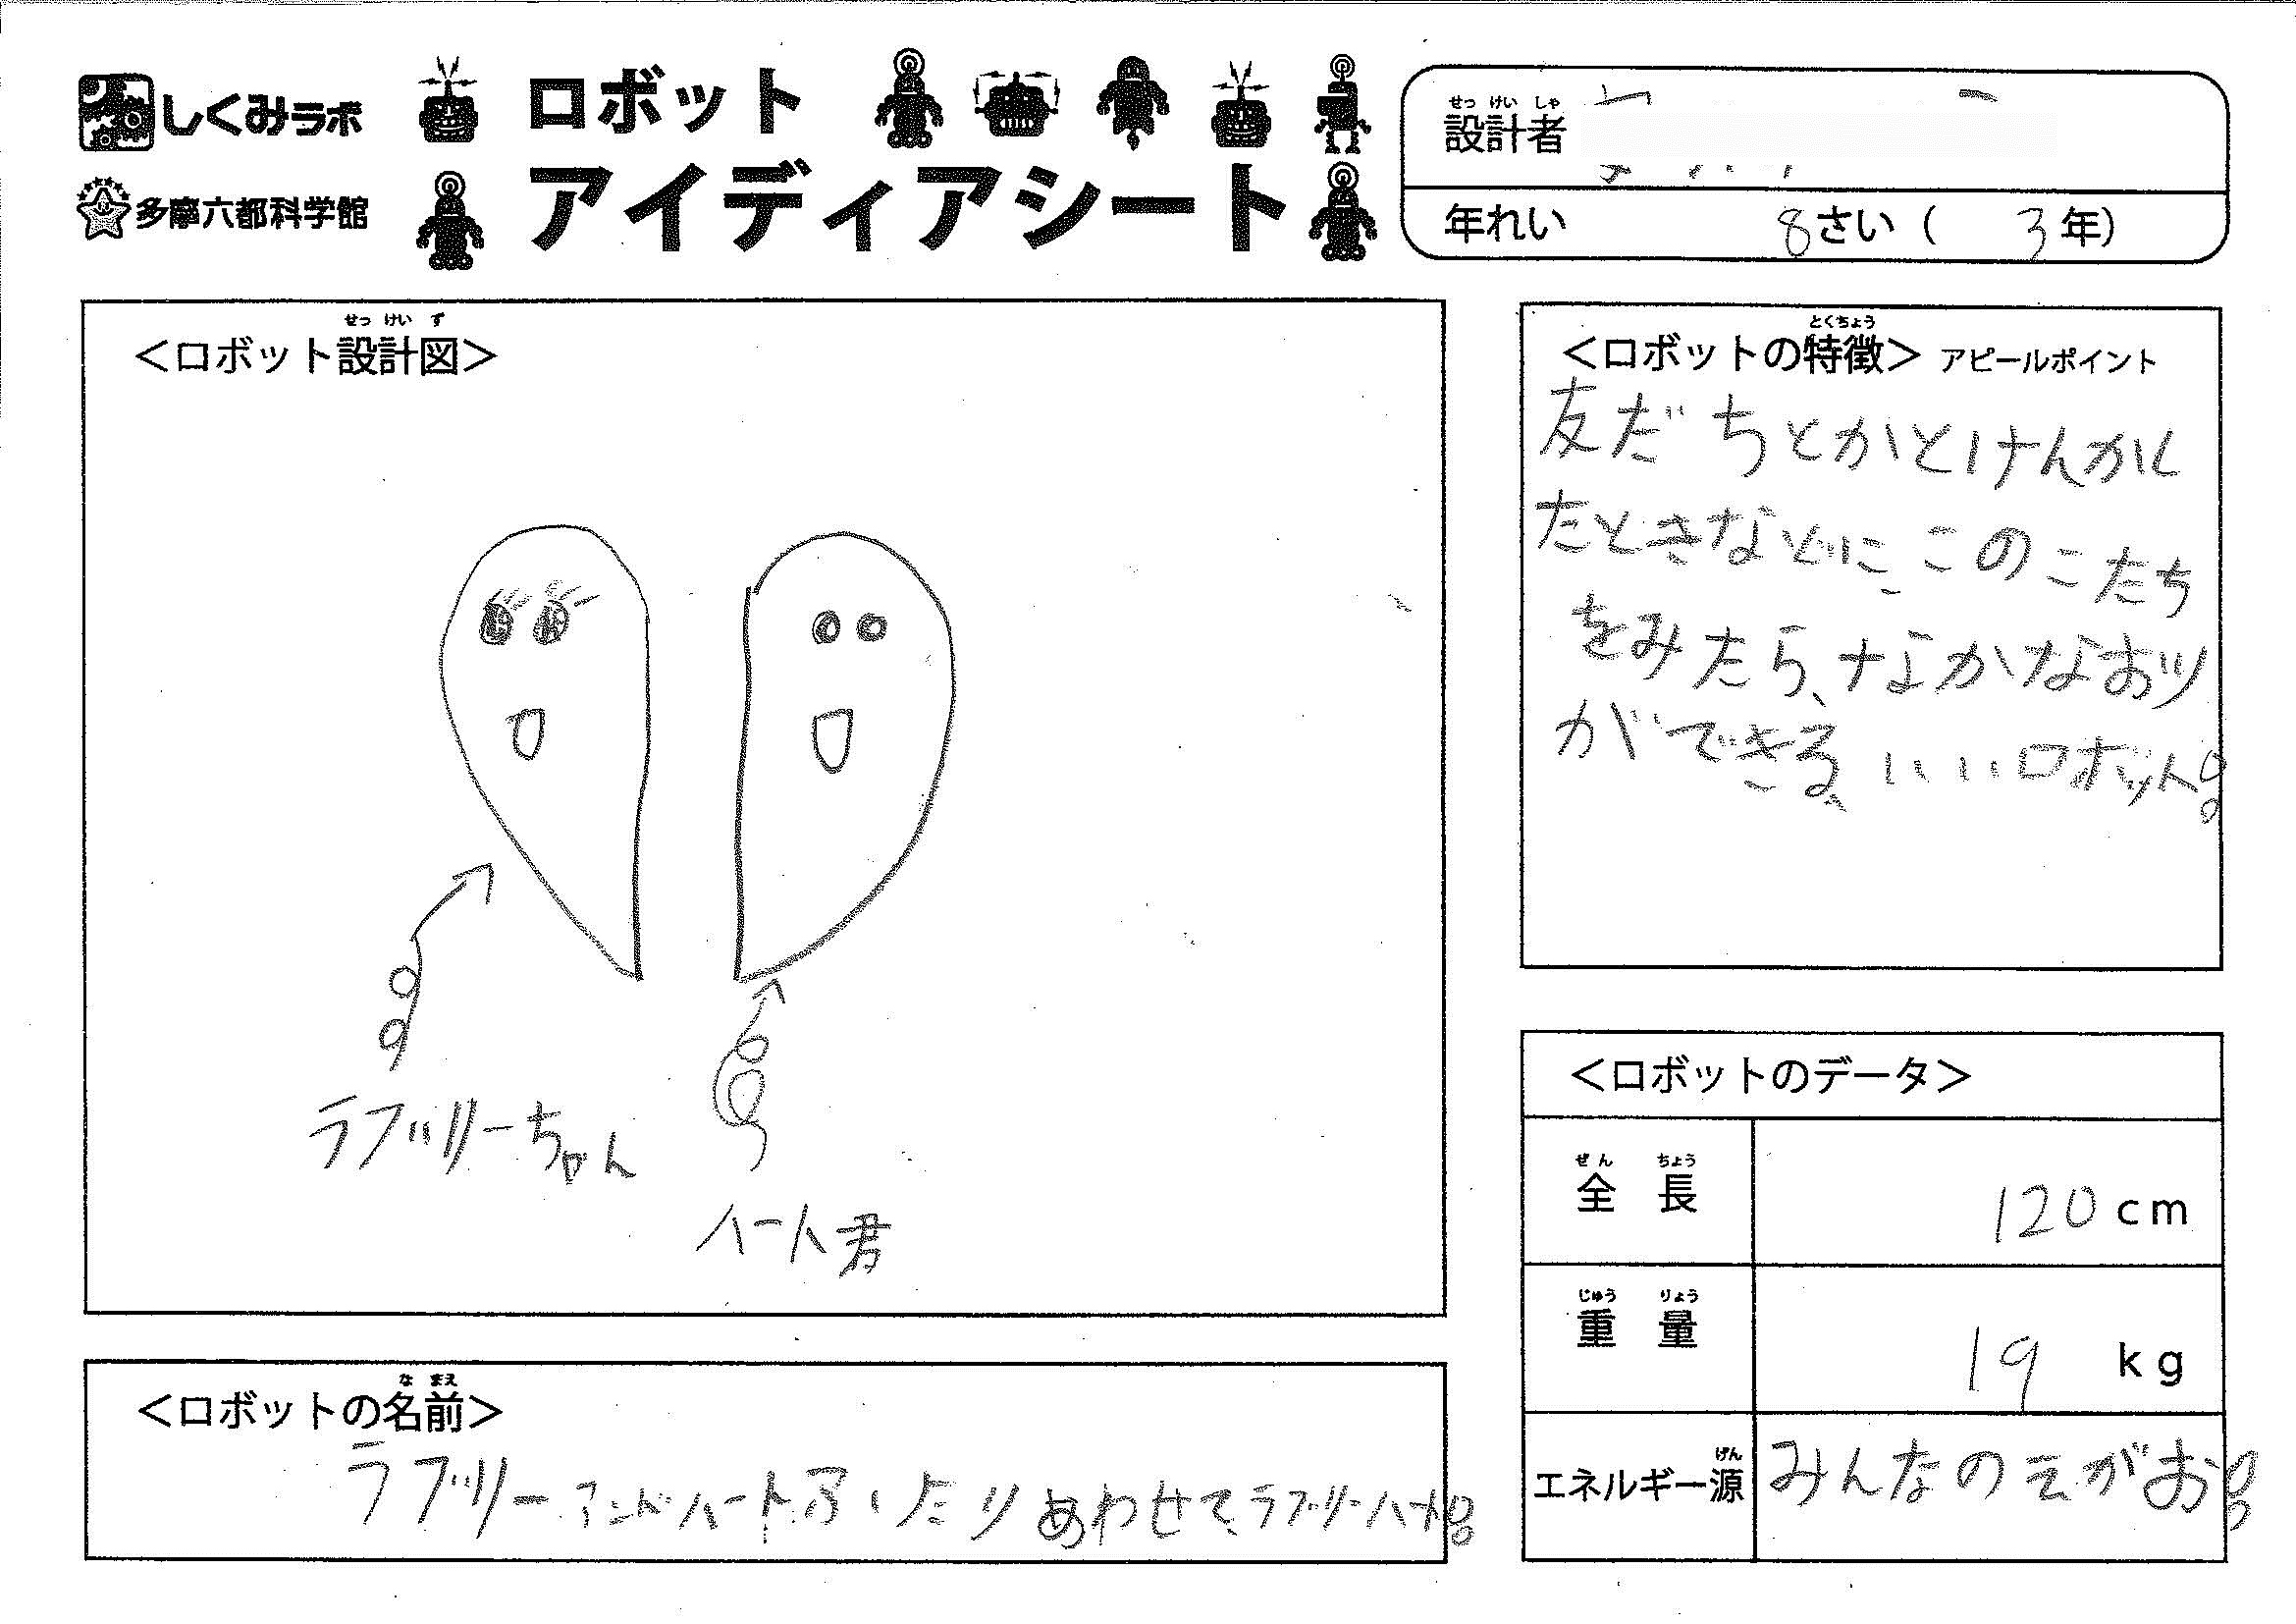 しくみラボ
多摩六都科学館
ロボット
アイディアシート
せっ けい しゃ
設計者
年れい 8さい ( 3年)
せっ けい ず
<ロボット設計図>
ラブリーちゃん
ハート君
な まえ
<ロボットの名前>
ラブリーアンドハート ふたりあわせて、ラブリーハート!!
とくちょう
<ロボットの特徴> アピールポイント
友だちとかとけんかし
たときなどにこのこたち
をみたら、なかなおり
ができる、いいロボット!
<ロボットのデータ>
ぜん ちょう
全長 120cm
じゅう りょう
重量 19 kg
げん
エネルギー源 みんなのえがお!!